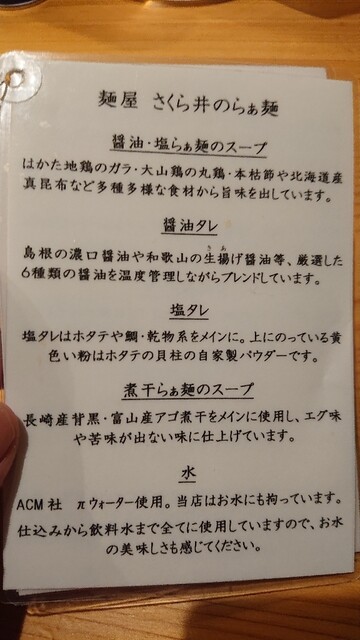 麺屋 さくら井のらぁ麺
醤油・塩らぁ麺のスープ
はかた地鶏のガラ・大山鶏の丸鶏・本枯節や北海道産
真昆布など多種多様な食材から旨味を出しています。
醤油タレ
島根の濃口醤油や和歌山の生揚げ醤油等、厳選した
6種類の醤油を温度管理しながらブレンドしています。
塩タレ
塩タレはホタテや鯛・乾物系をメインに。上にのっている黄
色い粉はホタテの貝柱の自家製パウダーです。
煮干らぁ麺のスープ
長崎産背黒・富山産アゴ煮干をメインに使用し、エグ味
や苦味が出ない味に仕上げています。
水
ACM社 πウォーター使用。当店はお水にも拘っています。
仕込みから飲料水まで全てに使用していますので、お水
の美味しさも感じてください。